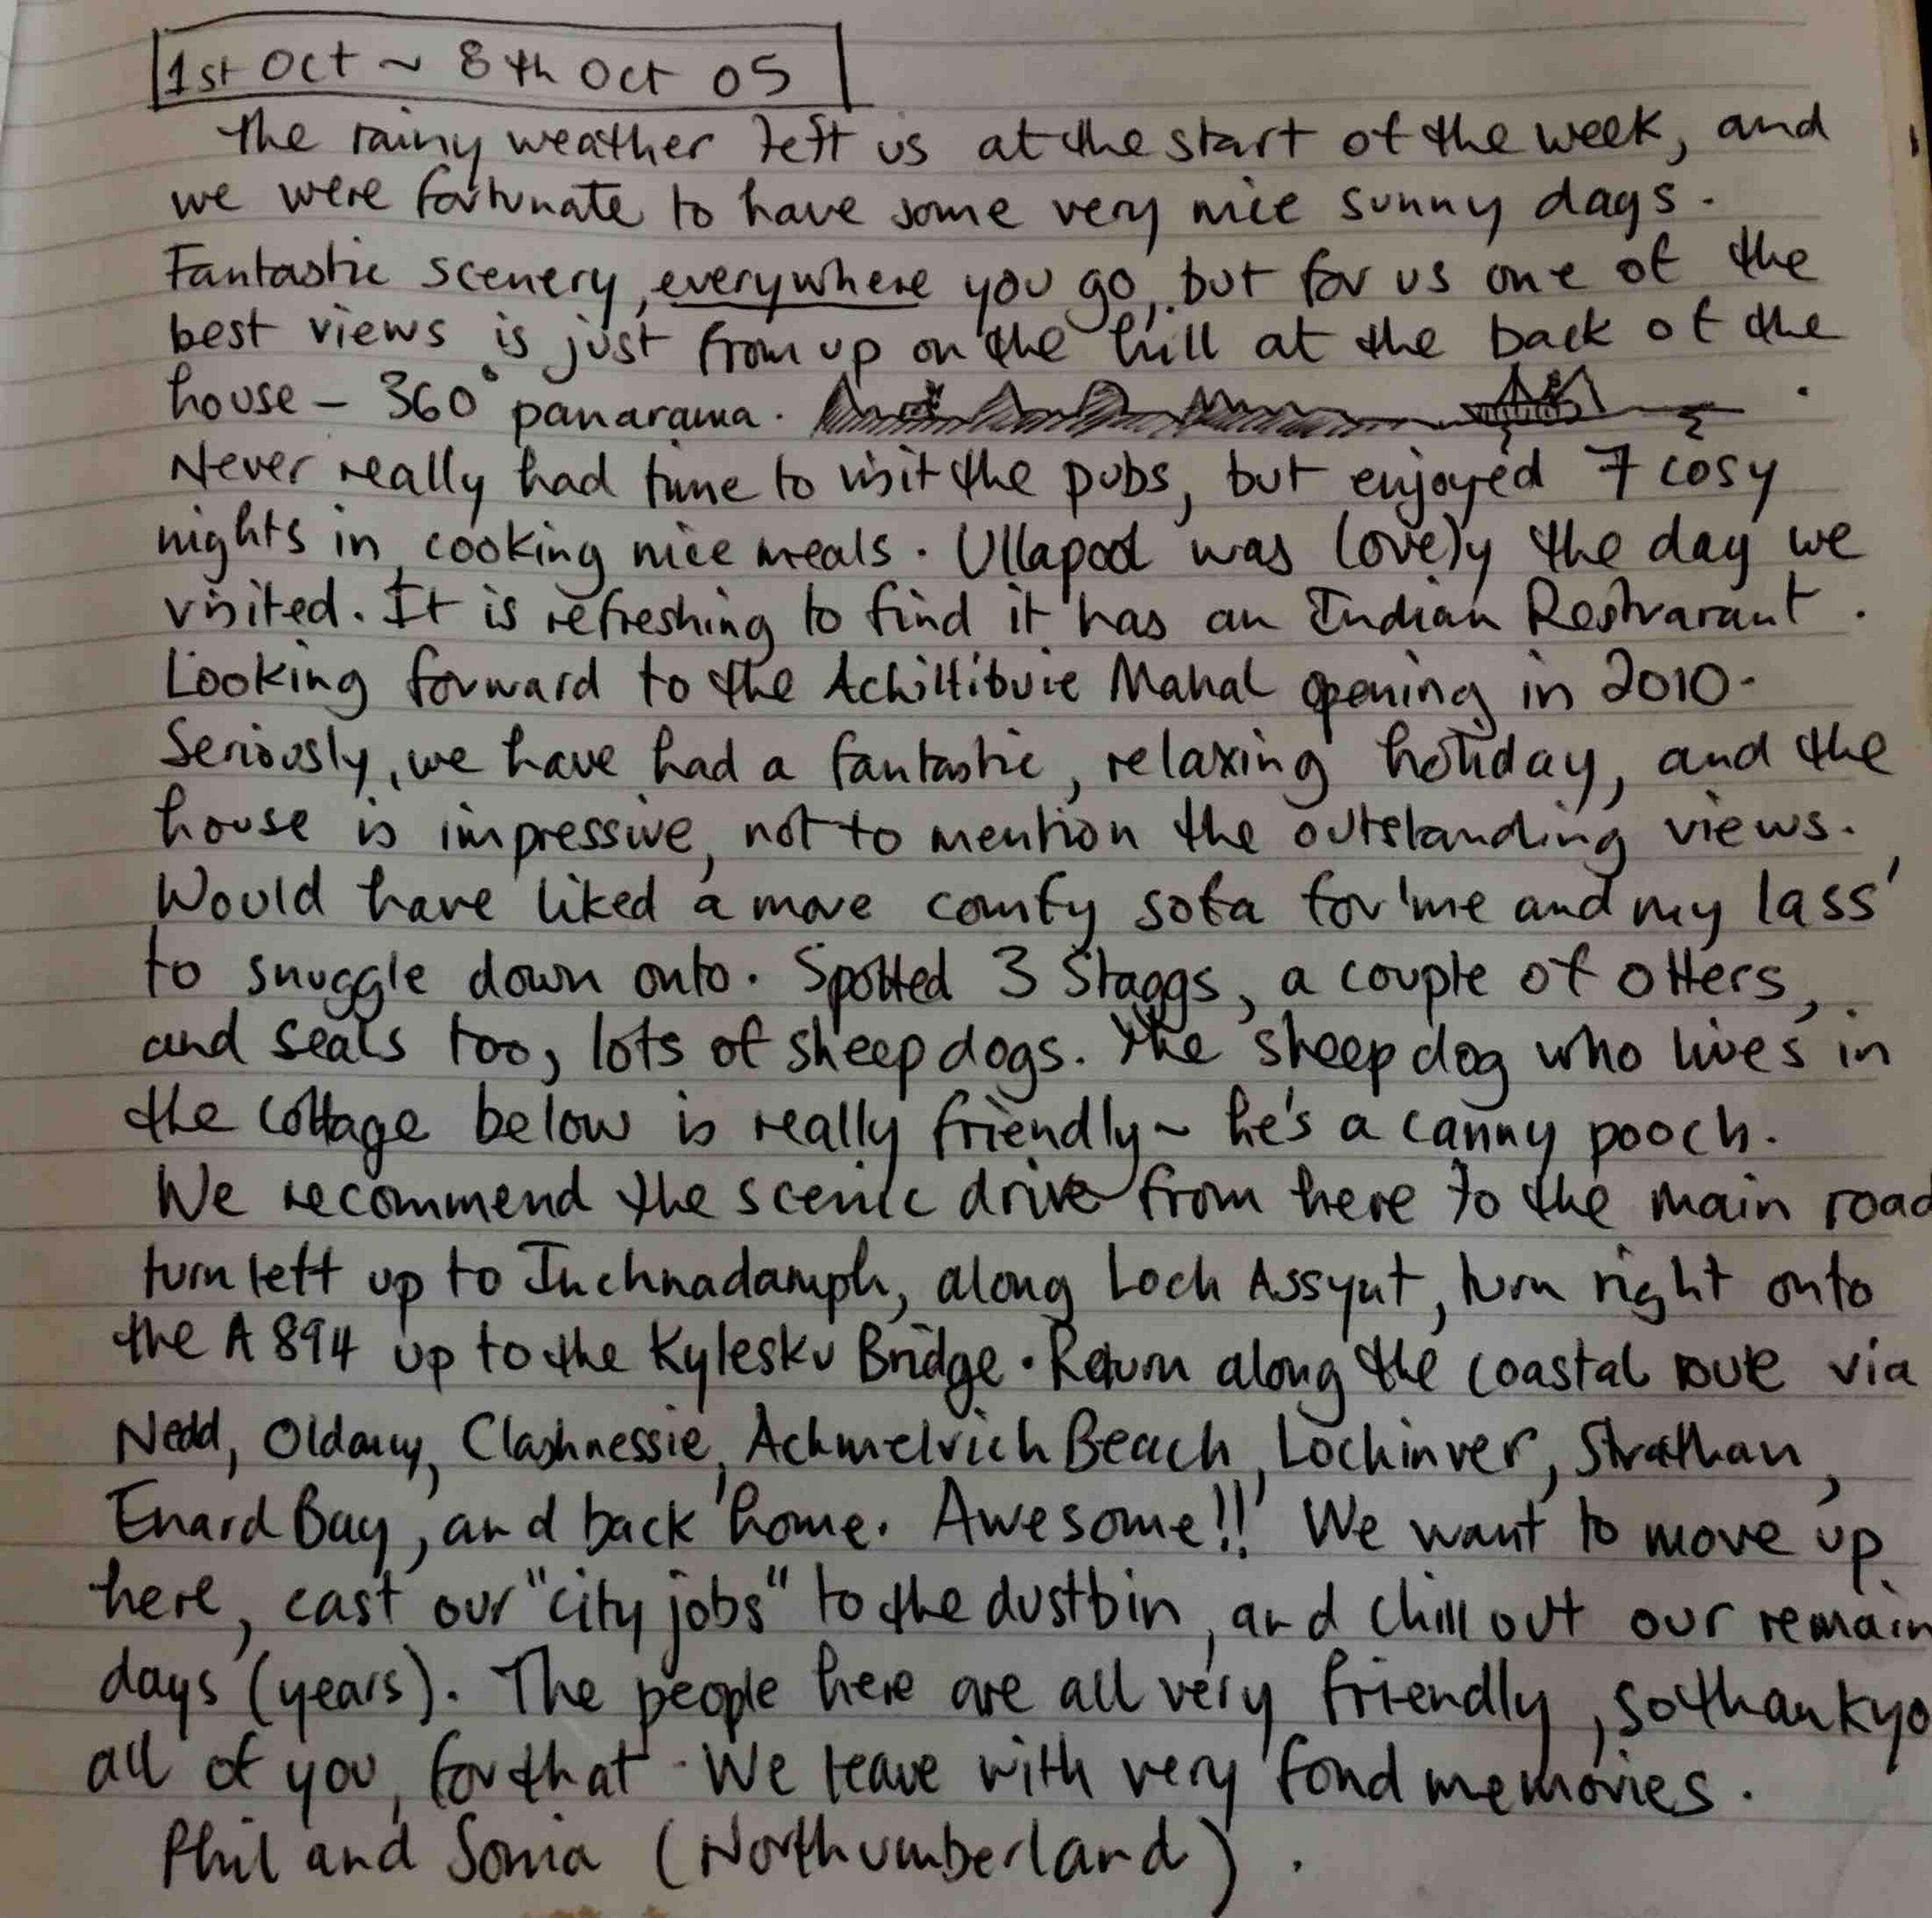 1st Oct ~ 8th Oct 05
The rainy weather left us at the start of the week, and
we were fortunate to have some very nice sunny days.
Fantastic scenery, everywhere you go, but for us one of the
best views is just from up on the hill at the back of the
house – 360° panarama.
Never really had time to visit the pubs, but enjoyed 7 cosy
nights in, cooking nice meals. Ullapool was lovely the day we
visited. It is refreshing to find it has an Indian Restuarant.
Looking forward to the Achiltibuie Mahal opening in 2010.
Seriously, we have had a fantastic, relaxing holiday, and the
house is impressive, not to mention the outstanding views.
Would have liked a more comfy sofa for 'me and my lass'
to snuggle down onto. Spotted 3 Staggs, a couple of otters,
and seals too, lots of sheep dogs. The sheep dog who lives in
the cottage below is really friendly ~ he's a canny pooch.
We recommend the scenic drive from here to the main road
turn left up to Inchnadamph, along Loch Assynt, turn right onto
the A894 up to the Kylesku Bridge. Return along the coastal route via
Nedd, Oldany, Clashnessie, Achmelvich Beach, Lochinver, Strathan,
Enard Bay, and back home. Awesome!! We want to move up
here, cast our "city jobs" to the dustbin, and chill out our remain
days (years). The people here are all very friendly, so thank yo
all of you, for that. We leave with very fond memories.
Phil and Sonia (Northumberland).